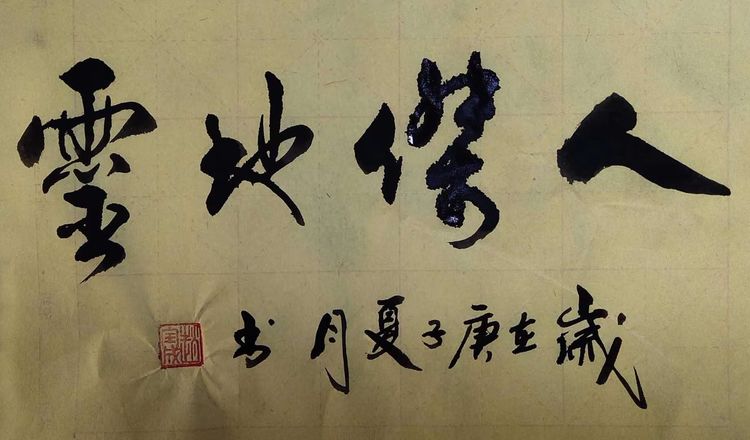 人傑地靈
歲在庚子夏月书